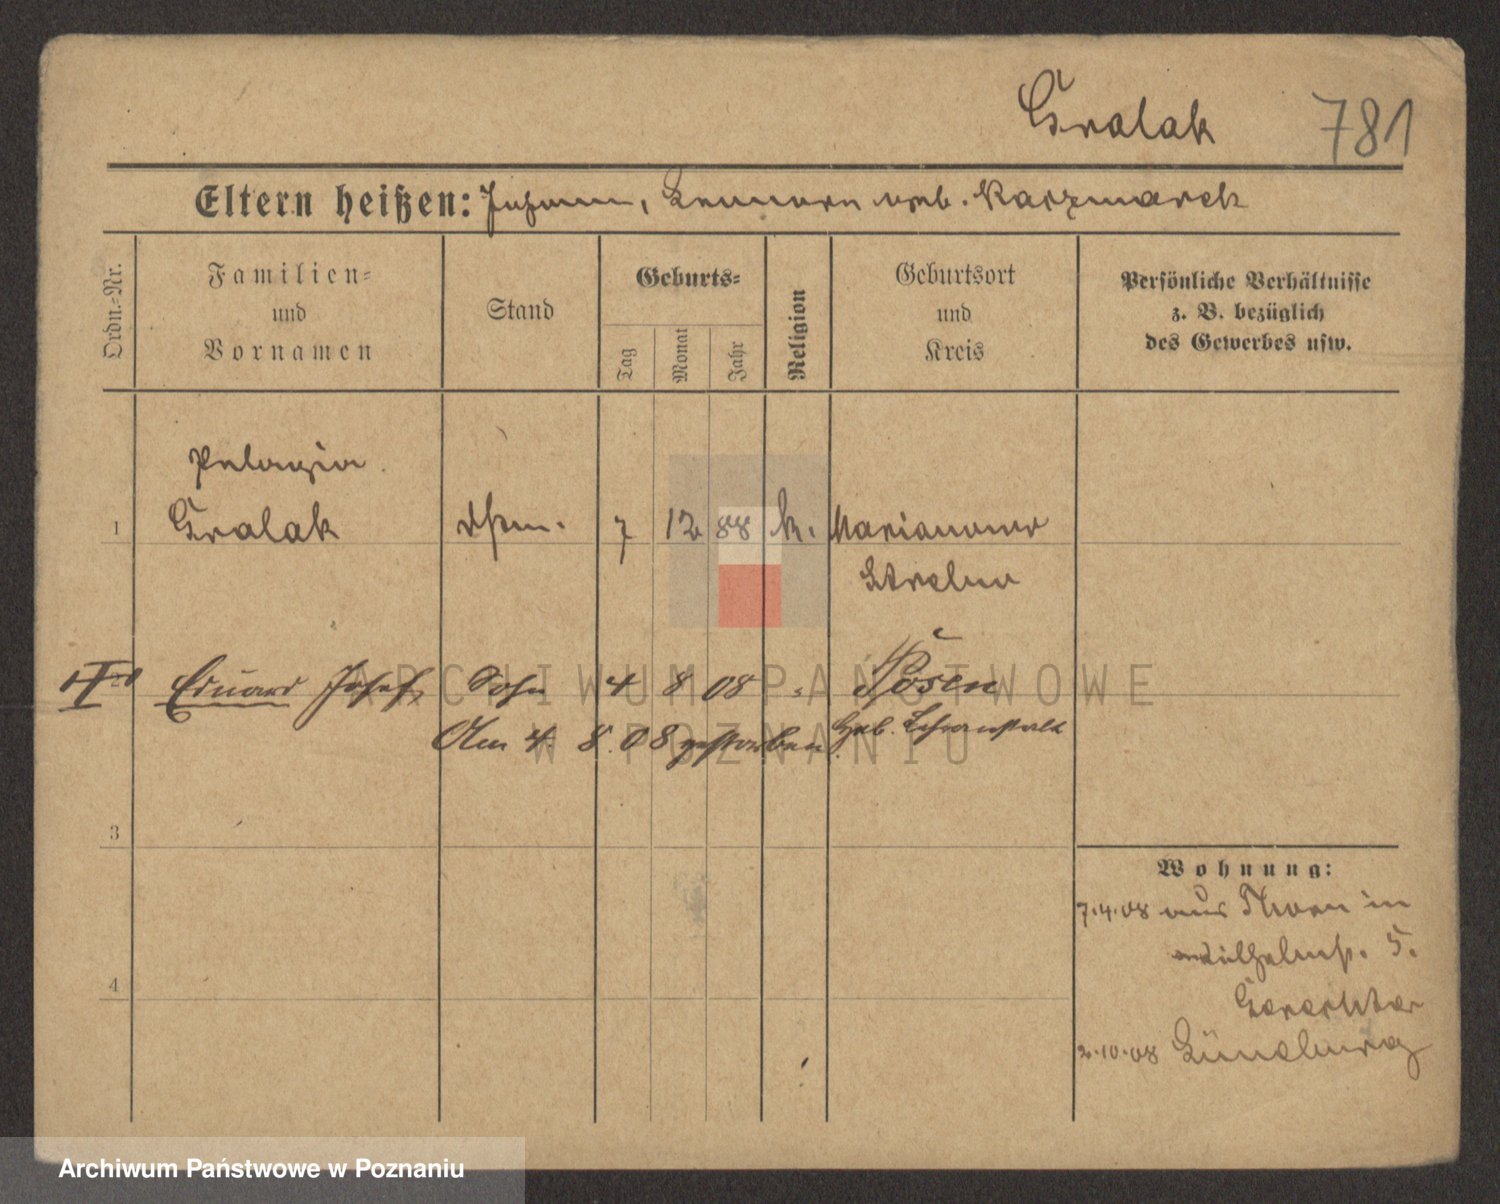 Gralak 781
Eltern heißen: Johann, geb. Kaczmarek
Ordn.-Nr.
Familien-
und
Vornamen
Stand
Geburts-
Tag
Monat
Jahr
Religion
Geburtsort
und
Kreis
Persönliche Verhältnisse
z. B. bezüglich
des Gewerbes usw.
Pelagia
1 Gralak 7 12 88 k. Marianowo
Strelno
Eduard Josef, Sohn 4 8 08 Posen
Am 4. 8. 08 gestorben. Heb. Lehranstalt
3
4
Wohnung:
7.4.08 aus Thorn in
Wilhelmsp. 5.
2.10.08 Lüneburg
ARCHIWUM PAŃSTWOWE
W POZNANIU
Archiwum Państwowe w Poznaniu